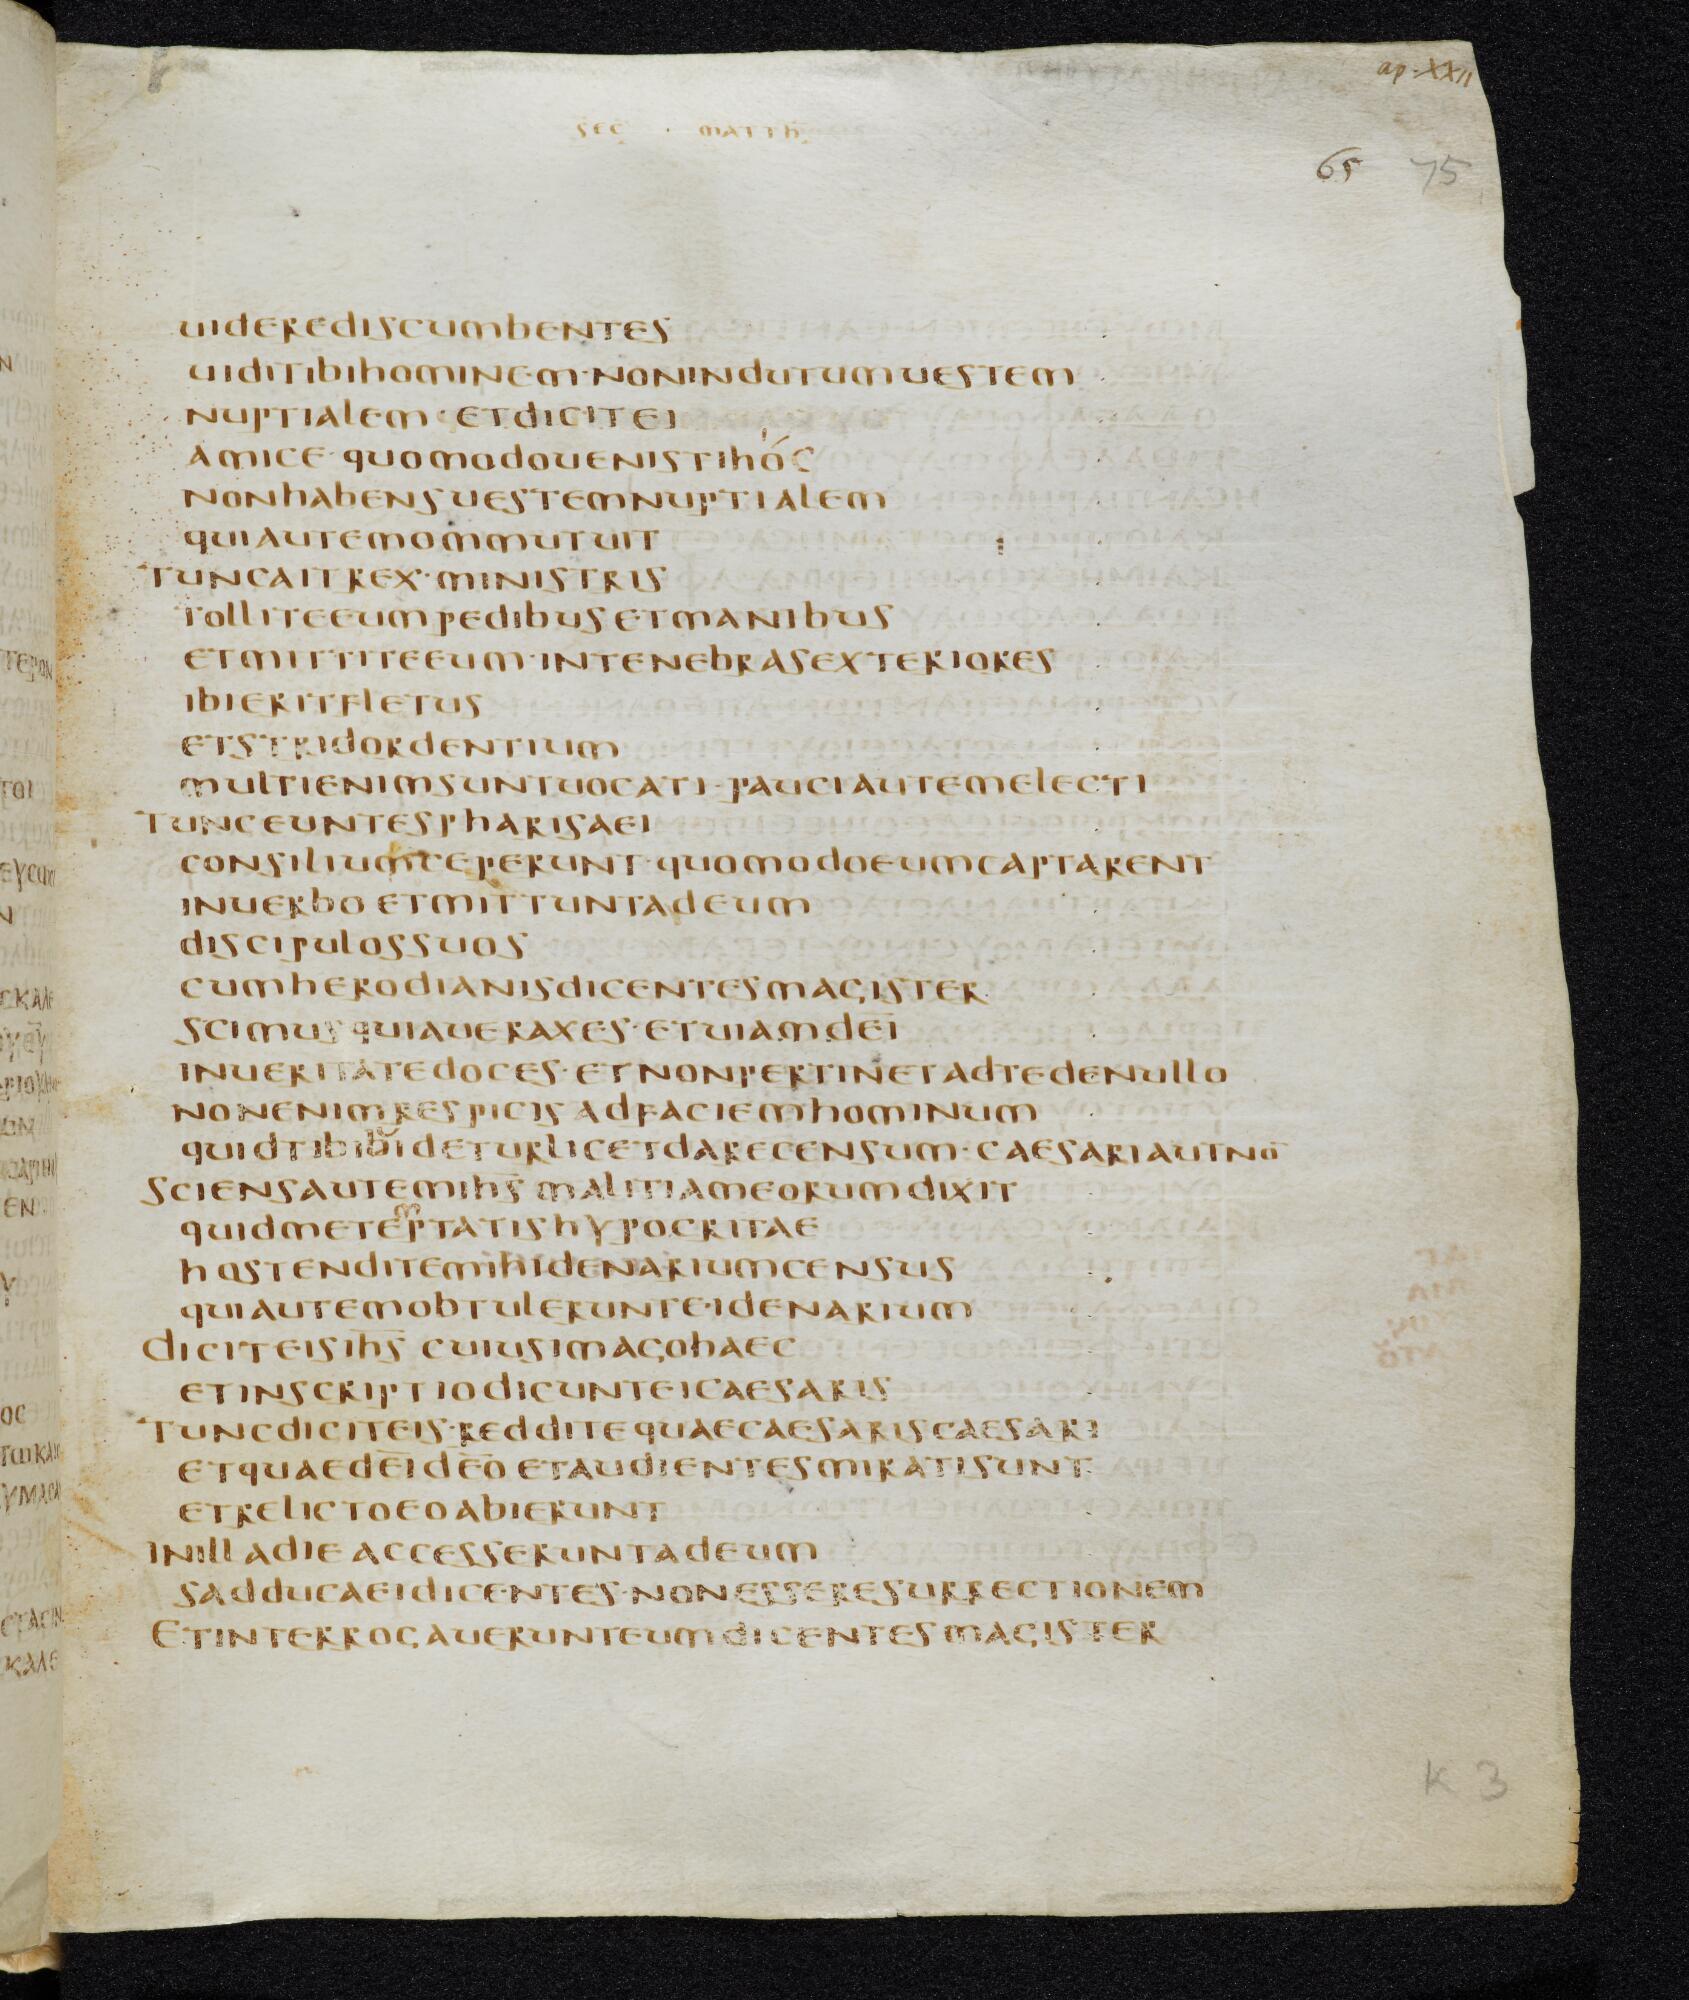 ap. XXII
sec · matth
65 75
uiderediscumbentes
uiditibihominem·nonindutumuestem
nuptialem·etdicitei
amice·quomodouenistihóc
nonhabensuestemnuptialem
quiautemommutuit
tuncaitrex·ministris
tolliteeumpedibusetmanibus
etmittiteeum·intenebrasexteriores
ibieritfletus
etstridordentium
multienimsuntuocati·pauciautemelecti
tunceuntespharisaei
consiliumceperunt·quomodoeumcaptarent
inuerbo etmittuntadeum
discipulossuos
cumherodianisdicentesmagister
scimusquiaueraxes·etuiamdeī
inueritatedoces·etnonpertinetadtedenullo
nonenimrespicis adfaciemhominum
quidtibiuideturlicetdarecensum·caesariautnō
sciensautemihs̄ malitiameorumdixit
quidmetemptatishypocritae
hostenditemihidenariumcensus
quiautemobtulerunte·idenarium
diciteisihs̄ cuiusimagohaec
etinscriptiodicunteicaesaris
tuncdiciteis·redditequaecaesariscaesari
etquaedēidēo etaudientesmiratisunt
etrelictoeoabierunt
inilladieaccesseruntadeum
sadducaeidicentes·nonesseresurrectionem
Etinterrogauerunteumdicentesmagister
K 3